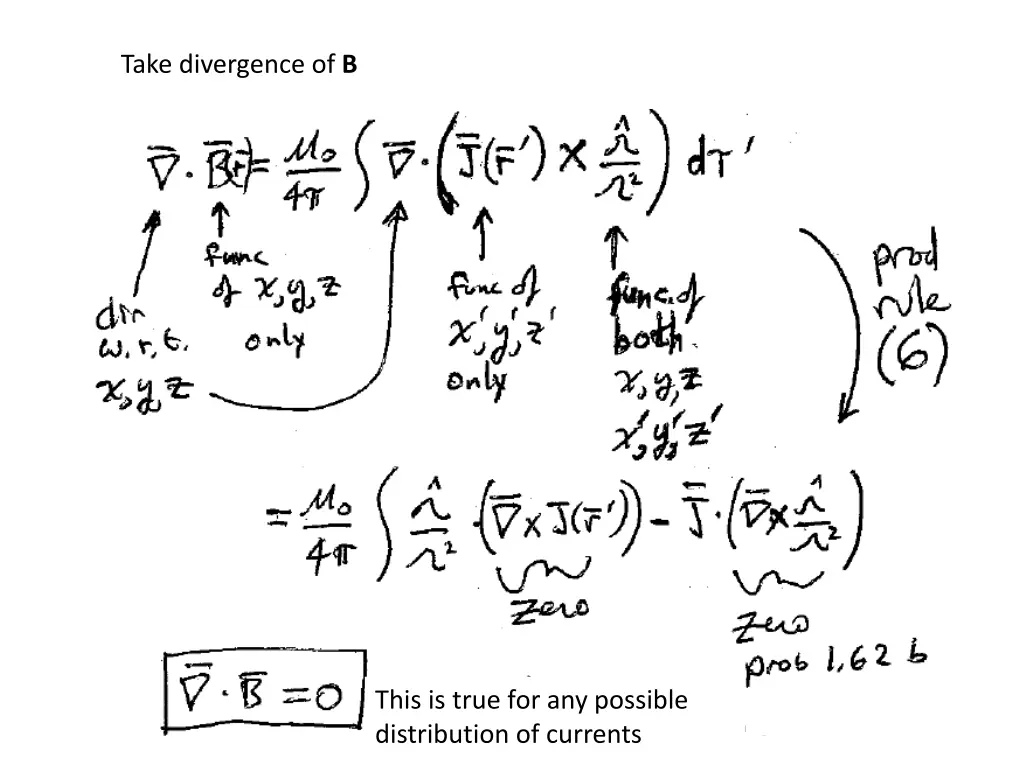 Take divergence of B
∇̄ · B̄(r̄) = μ₀/4π ∫ ∇̄ · (J̄(r̄′) × 𝓇̂/𝓇²) dτ′
func
of x,y,z
only
dir
w.r.t.
x,y,z
func of
x′,y′,z′
only
func. of
both
x,y,z
x′,y′,z′
prod
rule
(6)
= μ₀/4π ∫ (𝓇̂/𝓇² · (∇̄ × J(r̄′)) − J̄ · (∇̄ × 𝓇̂/𝓇²)
zero
zero
prob 1.62 b
∇̄ · B̄ = 0
This is true for any possible
distribution of currents